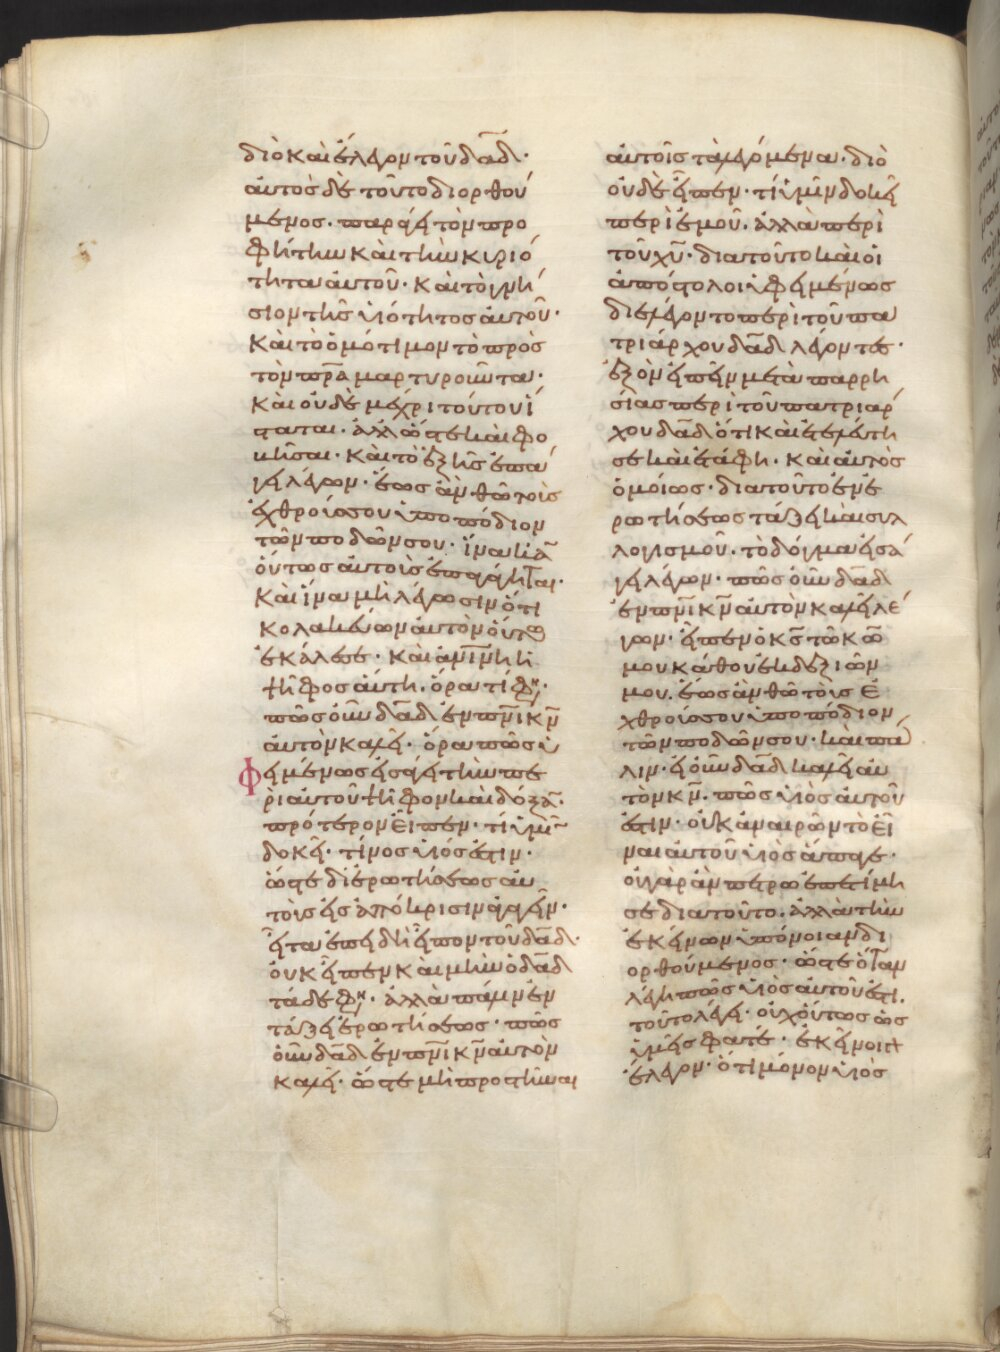 διὸ καὶ ἔλεγον τοῦ δαδ·
αὐτὸς δὲ τοῦτο διορθού
μενος. παράγει τὸν προ
φήτην καὶ τὴν κυριό
τητα αὐτοῦ· καὶ τὸ γνή
σιον τῆς υἱότητος αὐτοῦ·
καὶ τὸ ὁμότιμον τὸ πρὸς
τὸν πρα μαρτυροῦντα·
καὶ οὐδὲ μέχρι τούτου ἵ
σταται. ἀλλ' ὥστε καὶ φο
βῆσαι· καὶ τὸ ἑξῆς ἐπά
γει λέγων· ἕως ἂν θῶ τοὺς
ἐχθρούς σου ὑποπόδιον
τῶν ποδῶν σου· ἵνα κἂ
οὕτως αὐτοὺς ἐπαγάγηται·
καὶ ἵνα μὴ λέγωσιν ὅτι
κολακεύων αὐτὸν οὕτω
ἐκάλεσε· καὶ ἀνίνη ἡ
ψῆφος αὕτη. ὅρα τί φη·
πῶς οὖν δαδ ἐν πνι κν
αὐτὸν καλεῖ· ὅρα πῶς ὑ
φειμένως εἰσάγει τὴν πε
ρὶ αὐτοῦ ψῆφον καὶ δόξα·
πρότερον εἶπεν· τί ὑμῖν
δοκεῖ· τίνος υἱός ἐστιν·
ὥστε δι' ἐρωτήσεως αὐ
τοὺς εἰς ἀπόκρισιν ἀγαγεῖν·
εἶτα ἐπειδὴ εἶπον τοῦ δαδ·
οὐκ εἶπεν καὶ μὴν ὁ δαδ
τάδε φη· ἀλλὰ πάλιν ἐν
τάξει ἐρωτήσεως· πῶς
οὖν δαδ ἐν πνι κν αὐτὸν
καλεῖ· ὥστε μὴ προστῆναι
αὐτοῖς τὰ λεγόμενα· διὸ
οὐδὲ εἶπεν· τί ὑμῖν δοκεῖ
περὶ ἐμοῦ. ἀλλὰ περὶ
τοῦ χυ· διατοῦτο καὶ οἱ
ἀπόστολοι ὑφειμένως
διελέγοντο περὶ τοῦ πα
τριάρχου δαδ λέγοντες·
ἐξὸν εἰπεῖν μετὰ παρρη
σίας περὶ τοῦ πατριάρ
χου δαδ ὅτι καὶ ἐτελεύτη
σε καὶ ἐτάφη· καὶ αὐτὸς
ὁμοίως· διατοῦτο ἐν ἐ
ρωτήσεως τάξει καὶ συλ
λογισμοῦ. τὸ δόγμα εἰσά
γει λέγων· πῶς οὖν δαδ
ἐν πνι κν αὐτὸν καλεῖ λέ
γων· εἶπεν ὁ κς τῷ κω
μου κάθου ἐκ δεξιῶν
μου. ἕως ἂν θῶ τοὺς ἐ
χθρούς σου ὑποπόδιον
τῶν ποδῶν σου· καὶ πά
λιν· εἰ οὖν δαδ καλεῖ αὐ
τὸν κν. πῶς υἱὸς αὐτοῦ
ἐστιν· οὐκ ἀναιρῶν τὸ εἶ
ναι αὐτοῦ υἱὸς ἄπαγε·
οὐ γὰρ ἂν πέτρω ἐπετίμη
σε διατοῦτο. ἀλλὰ τὴν
ἐκείνων ὑπόνοιαν δι
ορθούμενος· ὥστε ὅταν
λέγη πῶς υἱὸς αὐτοῦ ἐστι.
τοῦτο λέγει· οὐχ οὕτως ὡς
ὑμεῖς φατέ· ἐκεῖνοι γὰρ
ἔλεγον· ὅτι μόνον υἱὸς